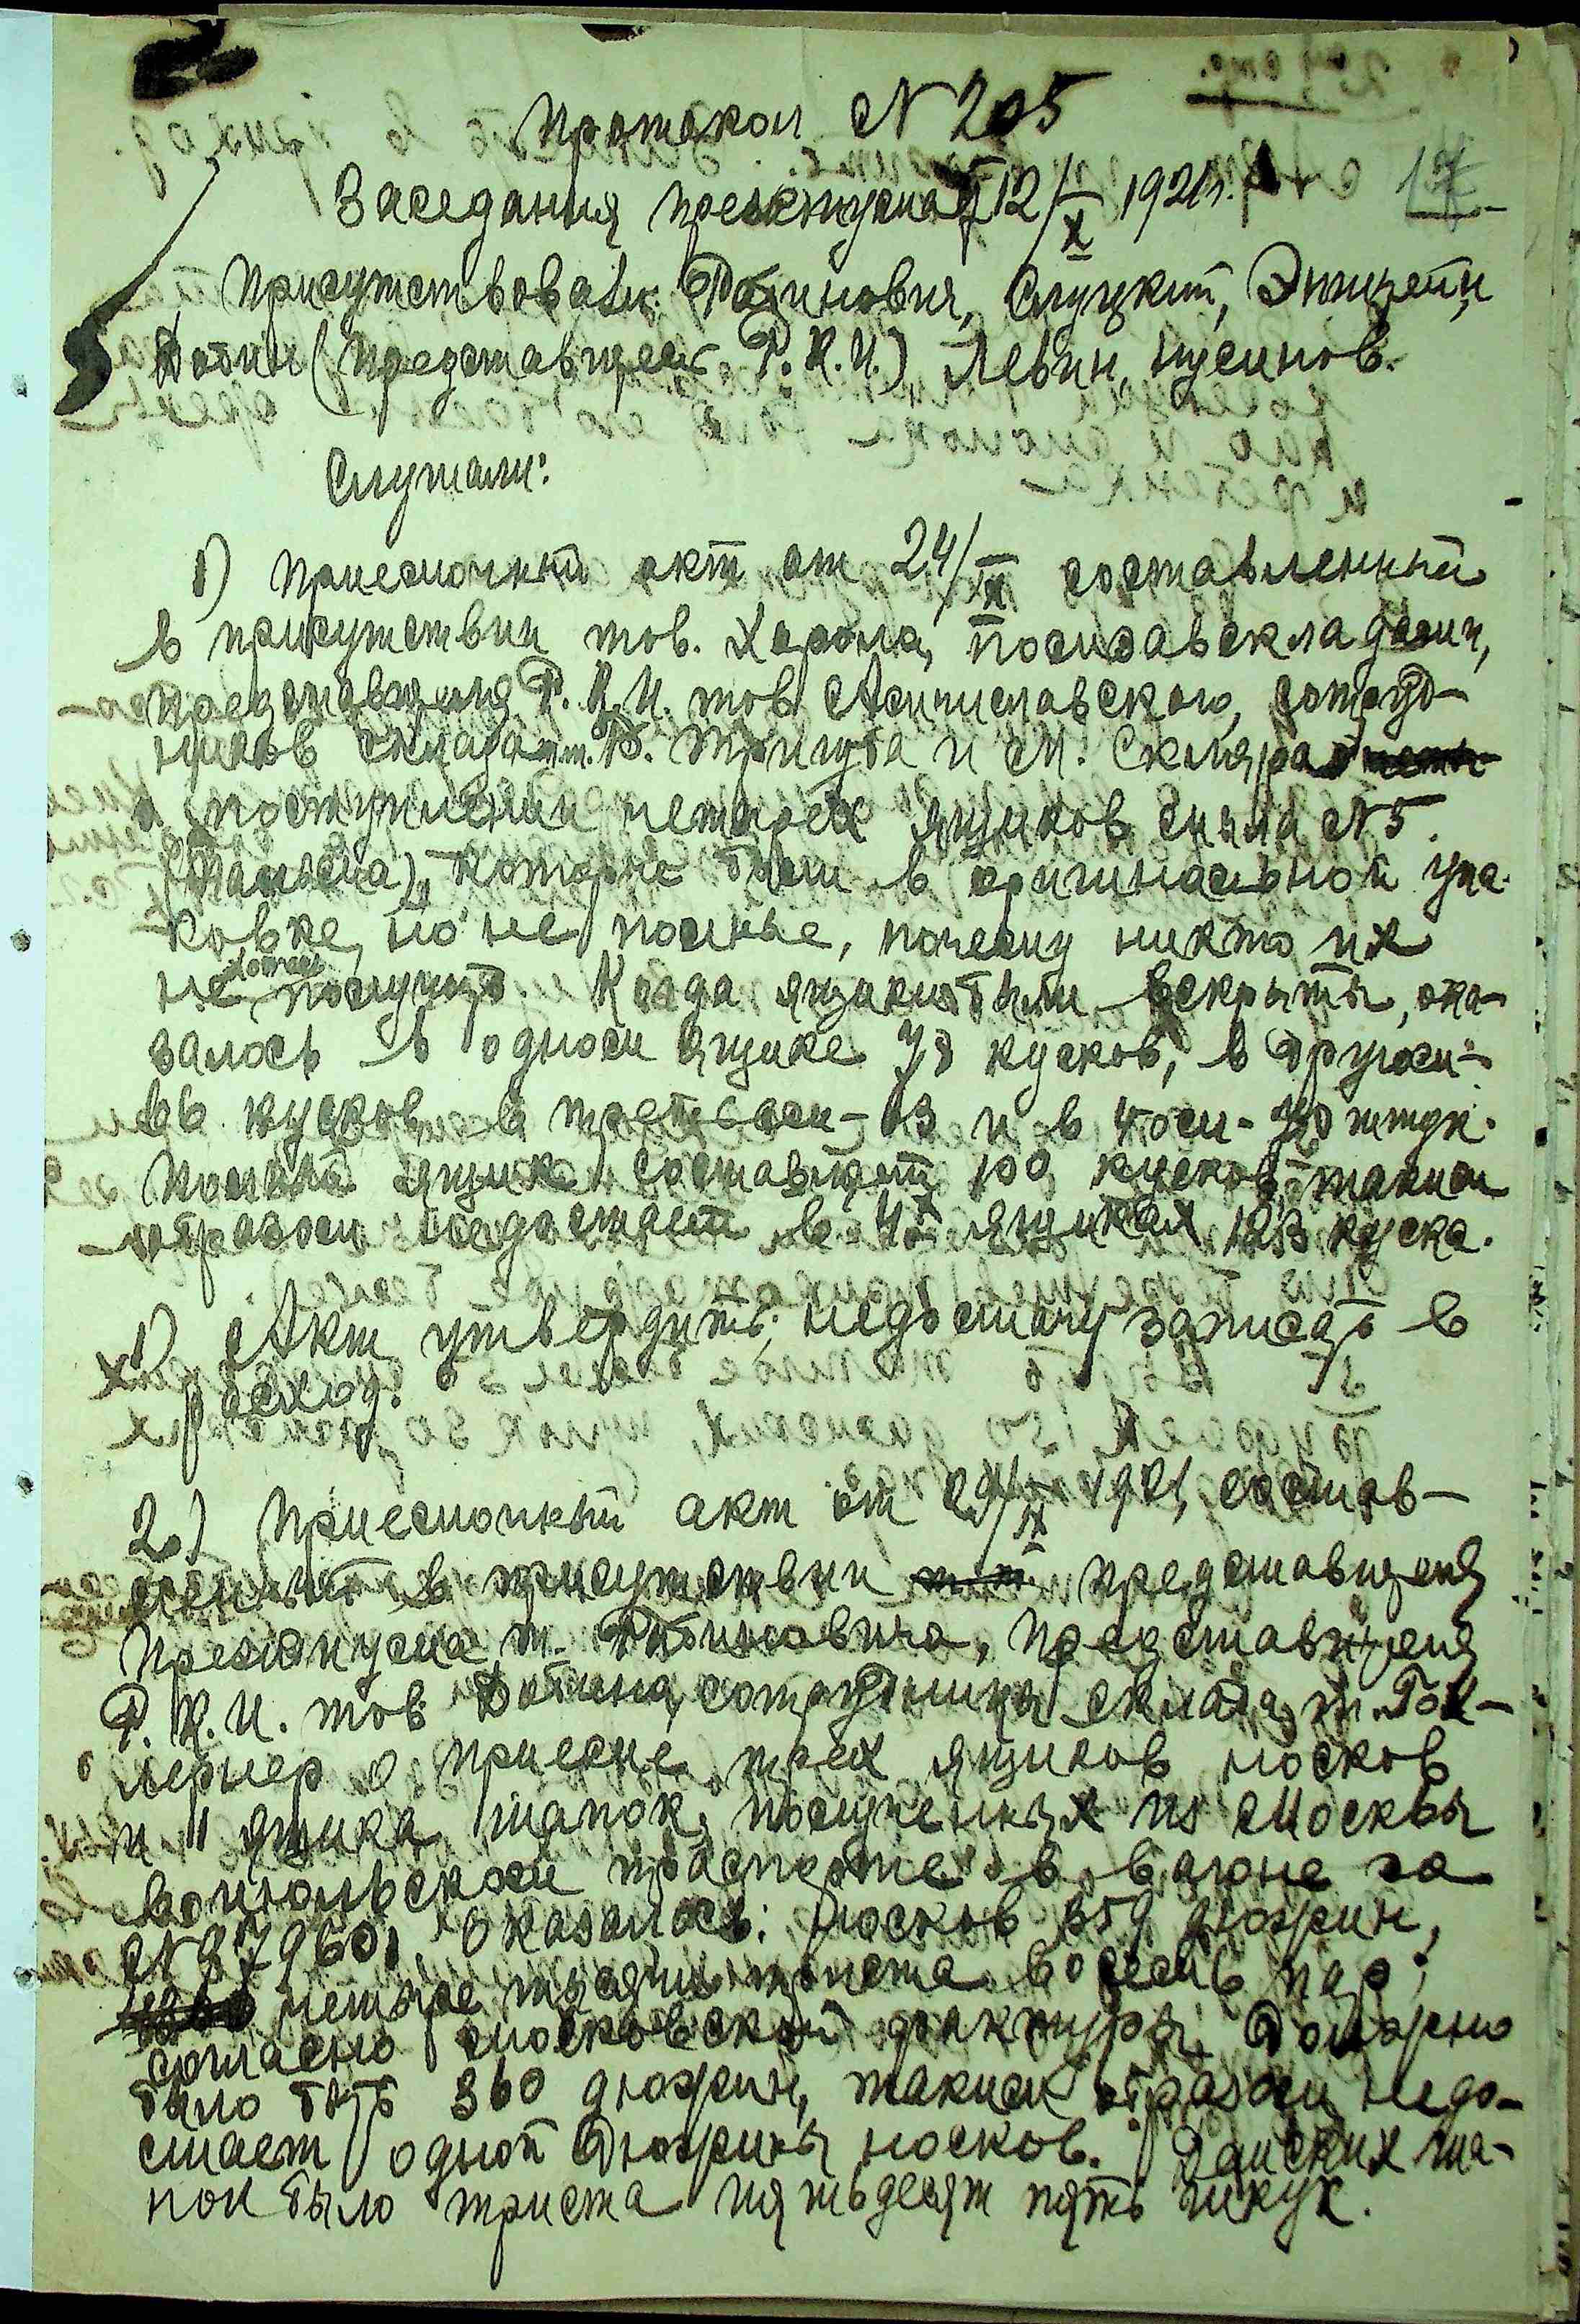 Протокол № 205
Заседания президиума 12/X 1921г.
Присутствовали: Рабинович, Слуцкий, Эпштейн,
Добин (представител Р.К.И.), Левин,
Слушали:
1) Приемочный акт от 24/IX составленный
в присутствии тов. Хорола, помзавскладами,
представителя Р.К.И. тов. Мстиславского, сотруд-
ников склада т.т. Б. Тригуба и М. Скляра
о поступлении четырех ящиков мыла № 5
которые были в оригинальной упа-
ковке, но не полные, почему никто их
не хотел получить. Когда ящики были вскрыты, ока-
залось в одном ящике 78 кусков, в другом -
66 кусков, в третьем - 63 и в 4ом - 70 штук.
Полный ящик составляет 100 кусков, таким
образом недостает в 4х ящиках 123 куска.
х 1) Акт утвердить, недостачу записать в
расход.
2) Приемочный акт от 29/IX 1921, состав-
ленный в присутствии представителя
Президиума т. Рабиновича, представителя
Р.К.И. тов. Добина, сотрудника склада т. Гок-
лернер о приеме трех ящиков носков
и 1 ящика шапок, полученных из Москвы
в июльском траспорте в вагоне за
№ 87960. Оказалось: носков 359 дюжин,
четыре тысячи триста восемь пар;
согласно московской фактуры должно
было быть 360 дюжин, таким образом недо-
стает одной дюжины носков. Дамских ша-
пок было триста пятьдесят пять штук.